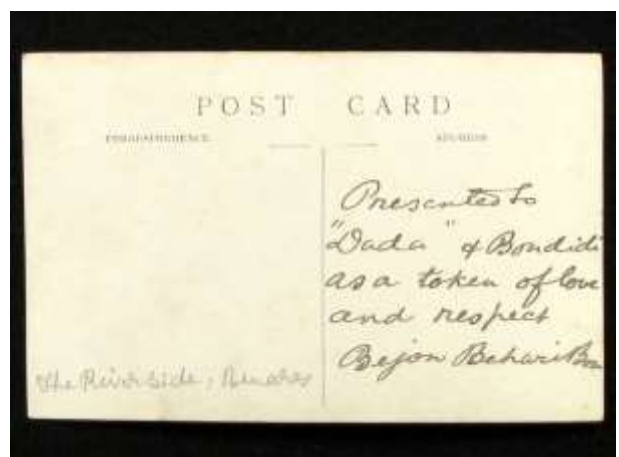 POST CARD
CORRESPONDENCE ADDRESS
Presented to
"Dada" & Bondidi
as a token of love
and respect
Bejon Behari
The Riverside, Benares